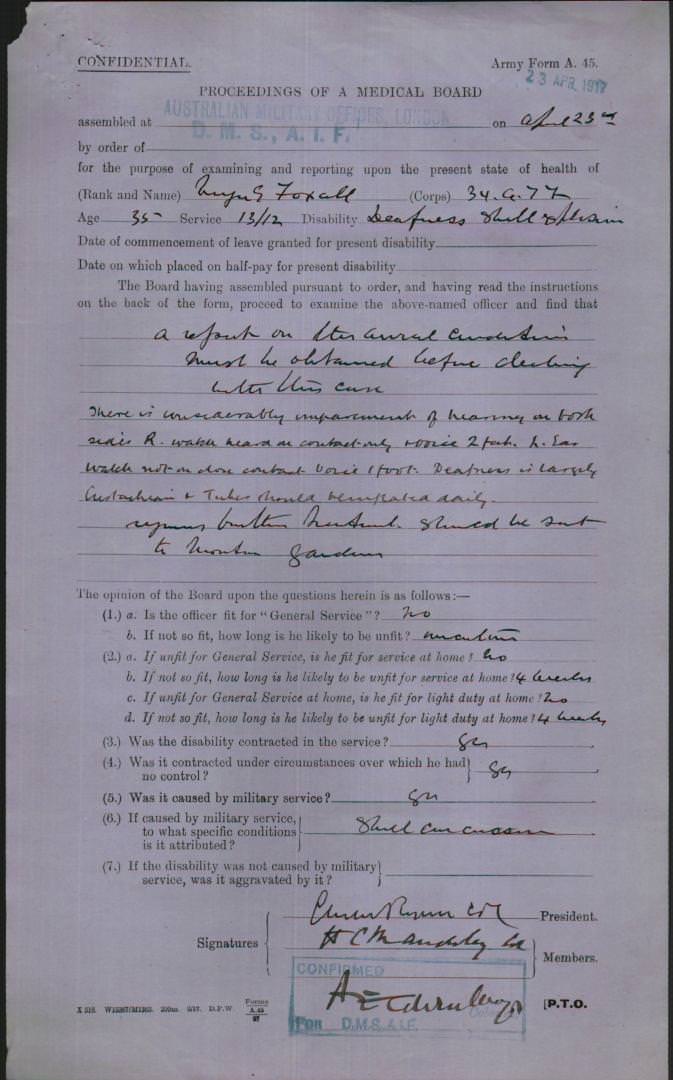 CONFIDENTIAL.
Army Form A. 45.
23 APR 1917
PROCEEDINGS OF A MEDICAL BOARD
AUSTRALIAN MILITARY OFFICES, LONDON
assembled at on April 23rd
D. M. S., A. I. F.
by order of
for the purpose of examining and reporting upon the present state of health of
(Rank and Name) Foxall (Corps)
Age 35 Service 13/12 Disability Deafness Shell
Date of commencement of leave granted for present disability
Date on which placed on half-pay for present disability
The Board having assembled pursuant to order, and having read the instructions
on the back of the form, proceed to examine the above-named officer and find that
a report on the aural condition
must be obtained before dealing
with this case
There is considerably impairment of hearing on both
sides R. watch heard on contact only voice 2 feet. L. Ear
watch not on close contact voice 1 foot. Deafness is largely
Eustachian & Tubes should be inflated daily.
further treatment. Should be sent
to Gardens
The opinion of the Board upon the questions herein is as follows:—
(1.) a. Is the officer fit for "General Service"? No
b. If not so fit, how long is he likely to be unfit?
(2.) a. If unfit for General Service, is he fit for service at home? No
b. If not so fit, how long is he likely to be unfit for service at home? 4 weeks
c. If unfit for General Service at home, is he fit for light duty at home? No
d. If not so fit, how long is he likely to be unfit for light duty at home? 4 weeks
(3.) Was the disability contracted in the service? yes
(4.) Was it contracted under circumstances over which he had
no control? yes
(5.) Was it caused by military service? yes
(6.) If caused by military service,
to what specific conditions
is it attributed? Shell concussion
(7.) If the disability was not caused by military
service, was it aggravated by it?
President.
Signatures
Members.
CONFIRMED
For D.M.S. A.I.F.
[P.T.O.
Forms
A. 45